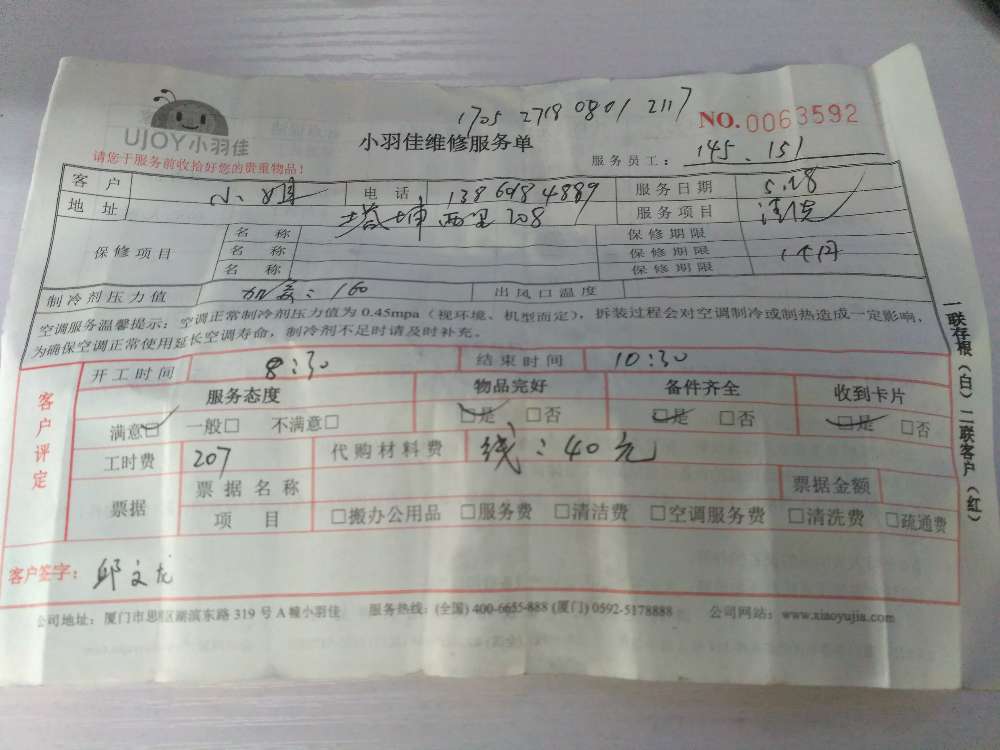 1705 2718 0801 2117
UJOY小羽佳
小羽佳维修服务单
NO.0063592
请您于服务前收拾好您的贵重物品!
服务员工: 145. 151
客户 小 电话 服务日期 5.28
地址 塔埔西里708 服务项目
保修项目 名称 保修期限
名称 保修期限 1个月
名称 保修期限
制冷剂压力值 160 出风口温度
空调服务温馨提示: 空调正常制冷剂压力值为 0.45mpa (视环境、机型而定), 拆装过程会对空调制冷或制热造成一定影响,
为确保空调正常使用延长空调寿命, 制冷剂不足时请及时补充。
开工时间 8:30 结束时间 10:30
客户评定
服务态度 物品完好 备件齐全 收到卡片
满意□ 一般□ 不满意□ □是 □否 □是 □否 □是 □否
工时费 207 代购材料费 线:40元
票据 票据名称 票据金额
项目 □搬办公用品 □服务费 □清洁费 □空调服务费 □清洗费 □疏通费
客户签字: 邱文龙
公司地址: 厦门市思明区湖滨东路 319 号 A 幢小羽佳 服务热线: (全国) 400-6655-888 (厦门) 0592-5178888 公司网站: www.xiaoyujia.com
一联存根(白)二联客户(红)